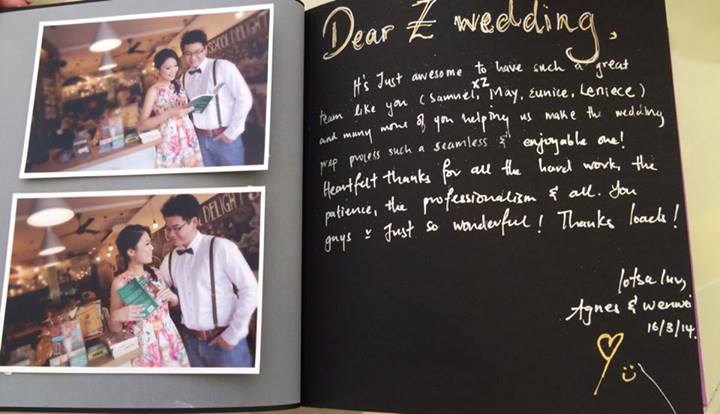 Dear Z wedding,
It's Just awesome to have such a great
team like you (Samuel x2, May, Eunice, Leniece)
and many more of you helping us make the wedding
prep process such a seamless & enjoyable one!
Heartfelt thanks for all the hard work, the
patience, the professionalism & all. You
guys r Just so wonderful! Thanks loads!
lotsa luv,
Agnes & wenwei
16/3/14.
DELIGHT
DELIGHT